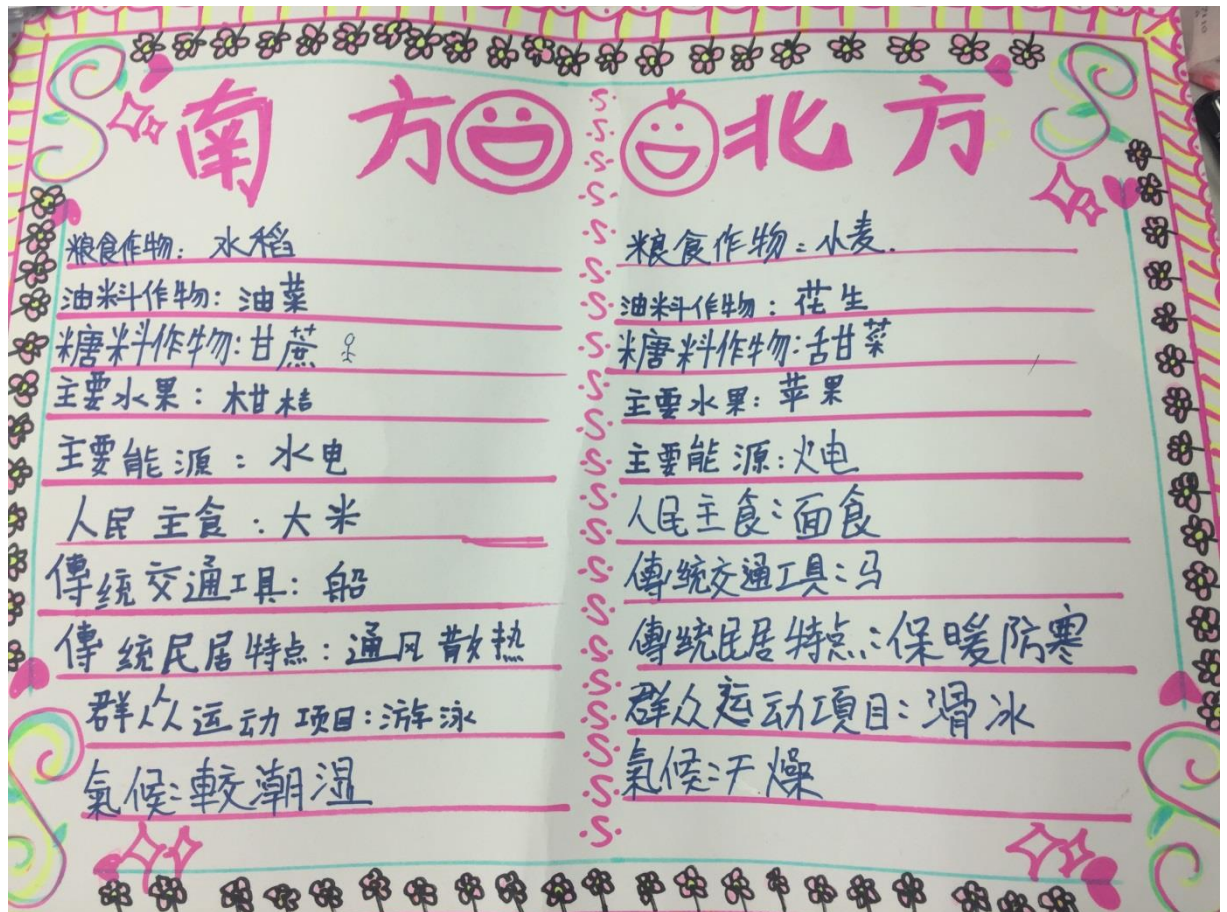 南方
粮食作物：水稻
油料作物：油菜
糖料作物：甘蔗
主要水果：柑桔
主要能源：水电
人民主食：大米
傳統交通工具：船
傳統民居特点：通风散热
群众运动项目：游泳
氣候：較潮湿
北方
粮食作物：小麦.
油料作物：花生
糖料作物：甜菜
主要水果：苹果
主要能源：火电
人民主食：面食
傳統交通工具：马
傳統民居特点：保暖防寒
群众运动項目：滑冰
氣候：干燥